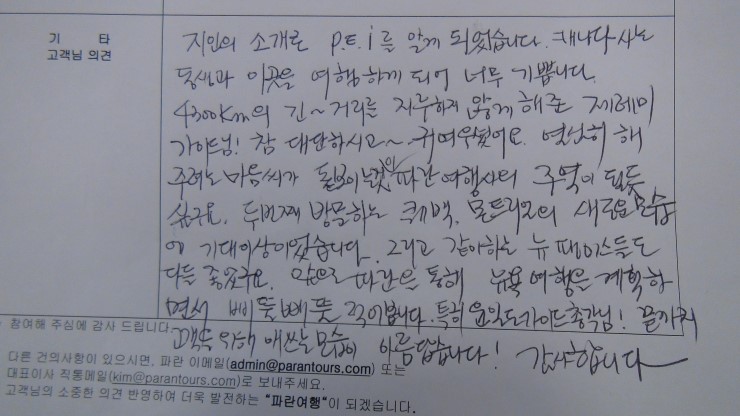 기 타
고객님 의견
지인의 소개로 P.E.i를 알게 되었습니다. 캐나다 사는
동생과 이곳을 여행하게 되어 너무 기쁩니다.
4300Km의 긴~거리를 지루하지 않게 해준 제레미
가이드님! 참 대단하시고~ 귀여우셨어요. 열심히 해
주려는 마음씨가 돋보이는것이 파란여행사의 주역이 될듯
싶구요. 두번째 방문하는 퀘백, 몬트리올의 새로운 모습
에 기대이상이었습니다. 그리고 같이하는 뉴 페이스들도
다들 좋았구요. 앞으로 파란을 통해 뉴욕여행을 계획하
면서 삐뚤빼뚤 적어봅니다. 특히 윤일도가이드총각님! 끝까지
고객을 위해 애쓰는 모습이 아름답습니다! 감사합니다
참여해 주심에 감사 드립니다.
다른 건의사항이 있으시면, 파란 이메일(admin@parantours.com) 또는
대표이사 직통메일(kim@parantours.com)로 보내주세요.
고객님의 소중한 의견 반영하여 더욱 발전하는 "파란여행"이 되겠습니다.